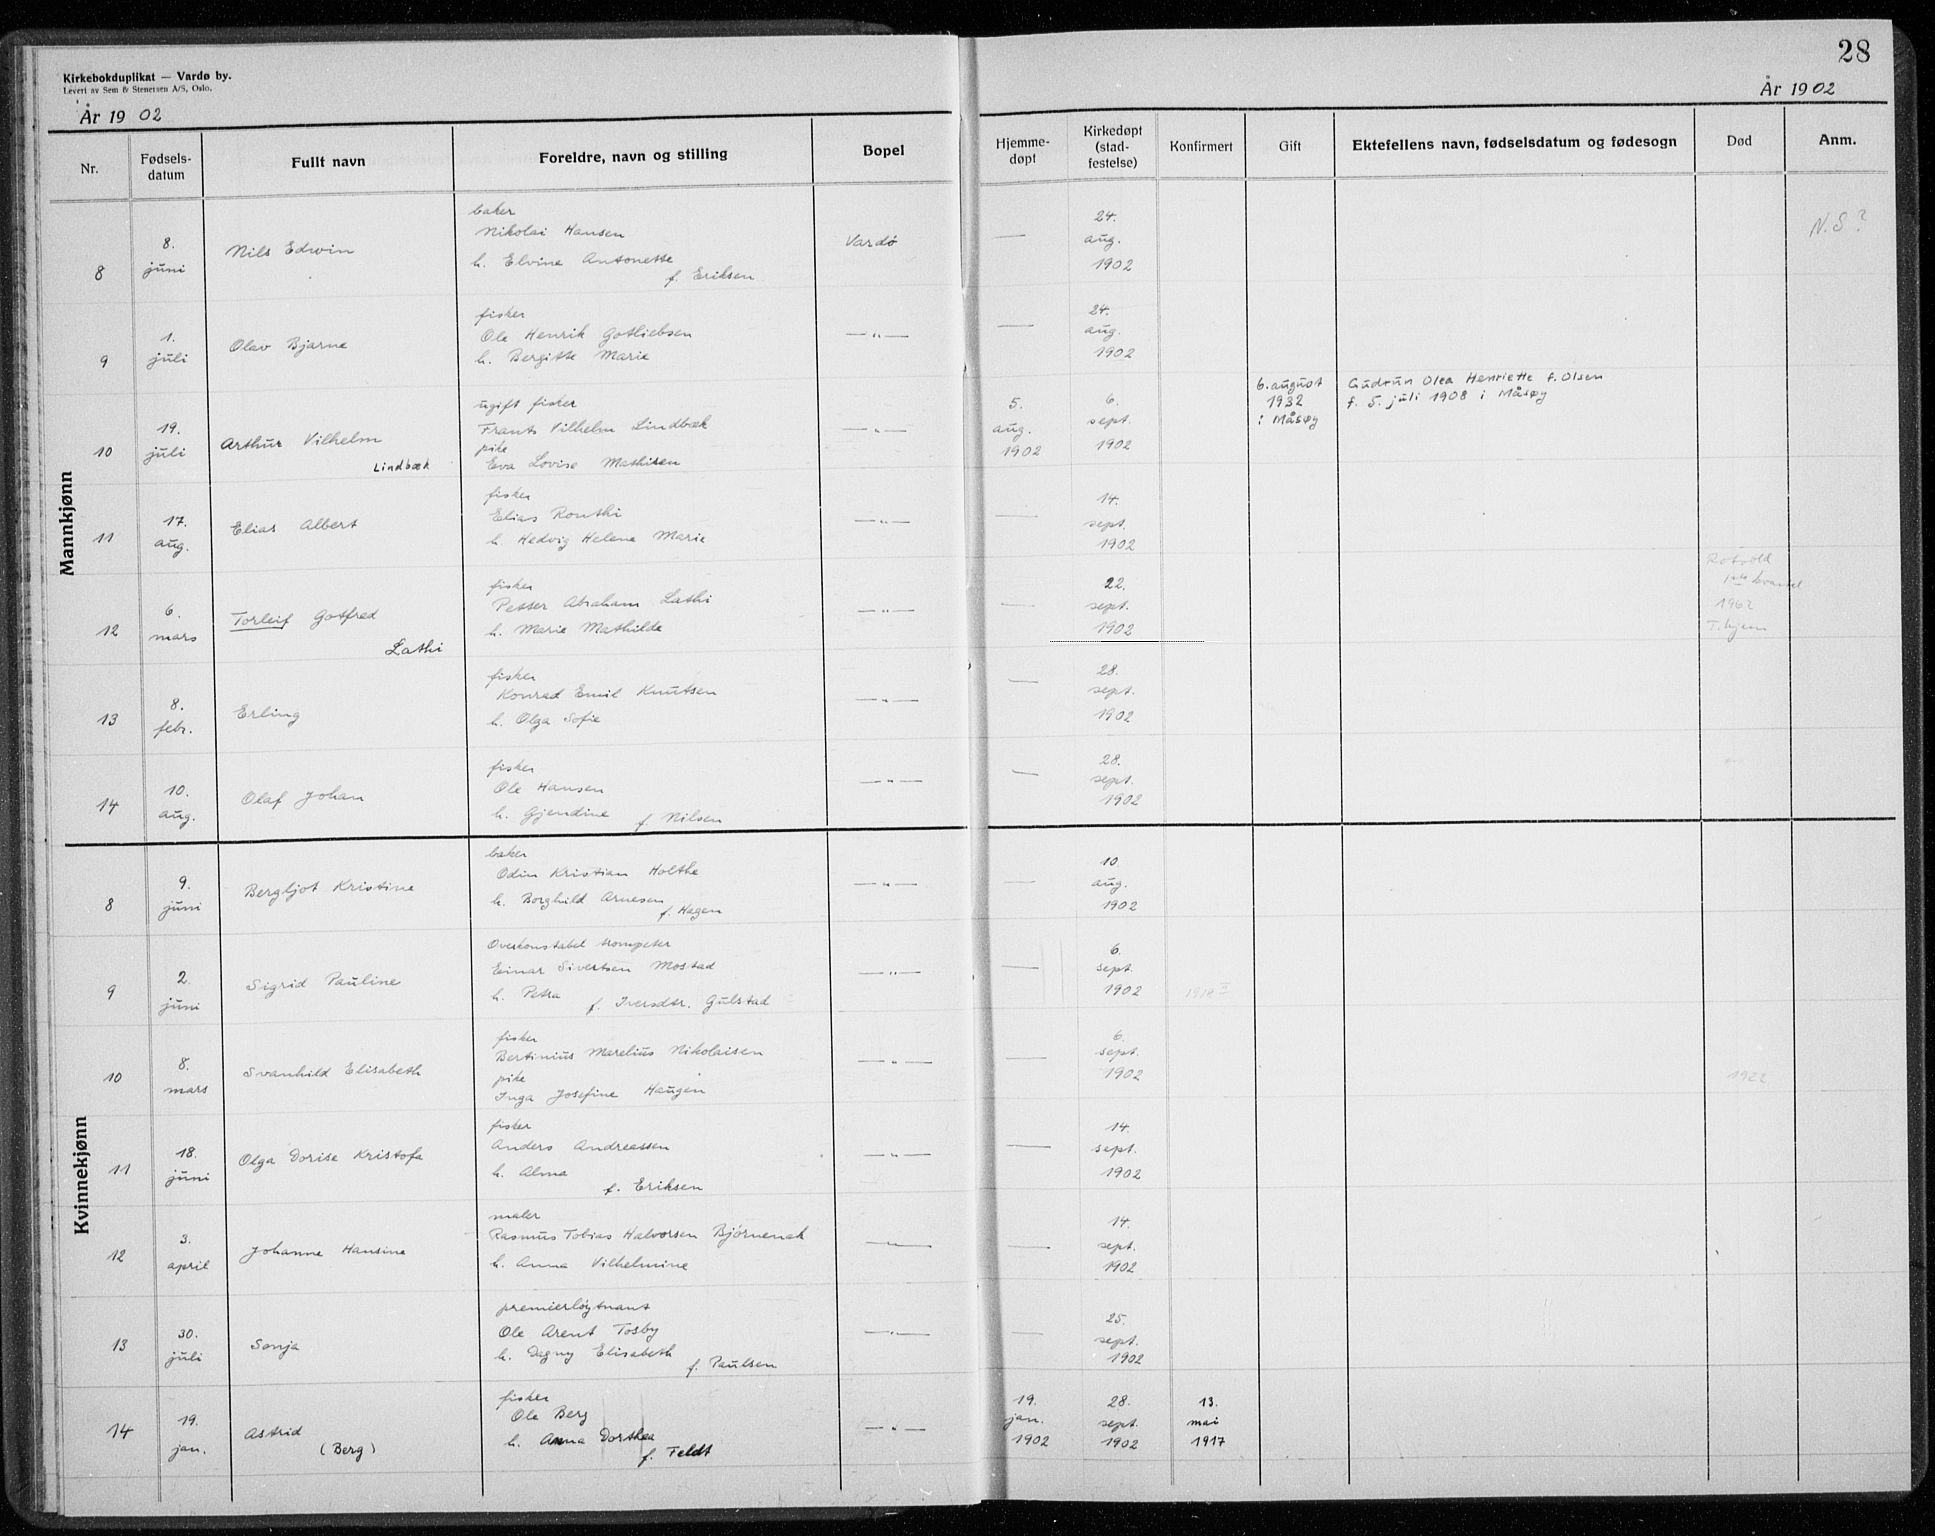 28
Kirkebokduplikat — Vardø by.
Levert av Sem & Stenersen A/S, Oslo.
År 1902
År 1902
Nr.
Fødsels-
datum
Fullt navn
Foreldre, navn og stilling
Bopel
Hjemme-
døpt
Kirkedøpt
(stad-
festelse)
Konfirmert
Gift
Ektefellens navn, fødselsdatum og fødesogn
Død
Anm.
Mannkjønn
8
8.
juni
Nils Edwin
baker
Nikolai Hansen
h. Elvine Antonette
f. Eriksen
Vardö
—
24.
aug.
1902
N.S?
9
1.
juli
Olav Bjarne
fisker
Ole Henrik Gotliebsen
h. Bergitte Marie
— " —
—
24.
aug.
1902
10
19.
juli
Arthur Vilhelm
Lindbæk
ugift fisker
Frants Vilhelm Lindbæk
pike
Eva Lovise Mathisen
— " —
5.
aug.
1902
6.
sept.
1902
6. august
1932
i Måsøy
Gudrun Olea Henriette f. Olsen
f. 5. juli 1908 i Måsøy
11
17.
aug.
Elias Albert
fisker
Elias Routhi
h. Hedvig Helene Marie
— " —
—
14.
sept.
1902
12
6.
mars
Torleif Gotfred
Lathi
fisker
Petter Abraham Lathi
h. Marie Mathilde
— " —
—
22.
sept.
1902
Rotvold
1962
T.hjem
13
8.
febr.
Erling
fisker
Konrad Emil Knutsen
h. Olga Sofie
— " —
—
28.
sept.
1902
14
10.
aug.
Olaf Johan
fisker
Ole Hansen
h. Gjendine f. Nilsen
— " —
—
28.
sept.
1902
Kvinnekjønn
8
9.
juni
Bergljot Kristine
baker
Odin Kristian Holthe
h. Borghild Arnesen
f. Hagen
— " —
—
10.
aug.
1902
9
2.
juni
Sigrid Pauline
Overkonstabel trompeter
Einar Sivertsen Mostad
h. Petra f. Iversdtr. Gulstad
— " —
—
6.
sept.
1902
10
8.
mars
Svanhild Elisabeth
fisker
Bertinius Marelius Nikolaisen
pike
Inga Josefine Haugen
— " —
—
6.
sept.
1902
1922
11
18.
juni
Olga Dorise Kristofa
fisker
Anders Andreassen
h. Alma
f. Eriksen
— " —
—
14.
sept.
1902
12
3.
april
Johanne Hansine
maler
Rasmus Tobias Halvorsen Bjørnenak
h. Anna Vilhelmine
— " —
—
14.
sept.
1902
13
30.
juli
Sonja
premierløytnant
Ole Arent Tosby
h. Dagny Elisabeth
f. Paulsen
— " —
—
25.
sept.
1902
14
19.
jan.
Astrid
(Berg)
fisker
Ole Berg
h. Anna Dorthea
f. Feldt
— " —
19.
jan.
1902
28.
sept.
1902
13.
mai
1917